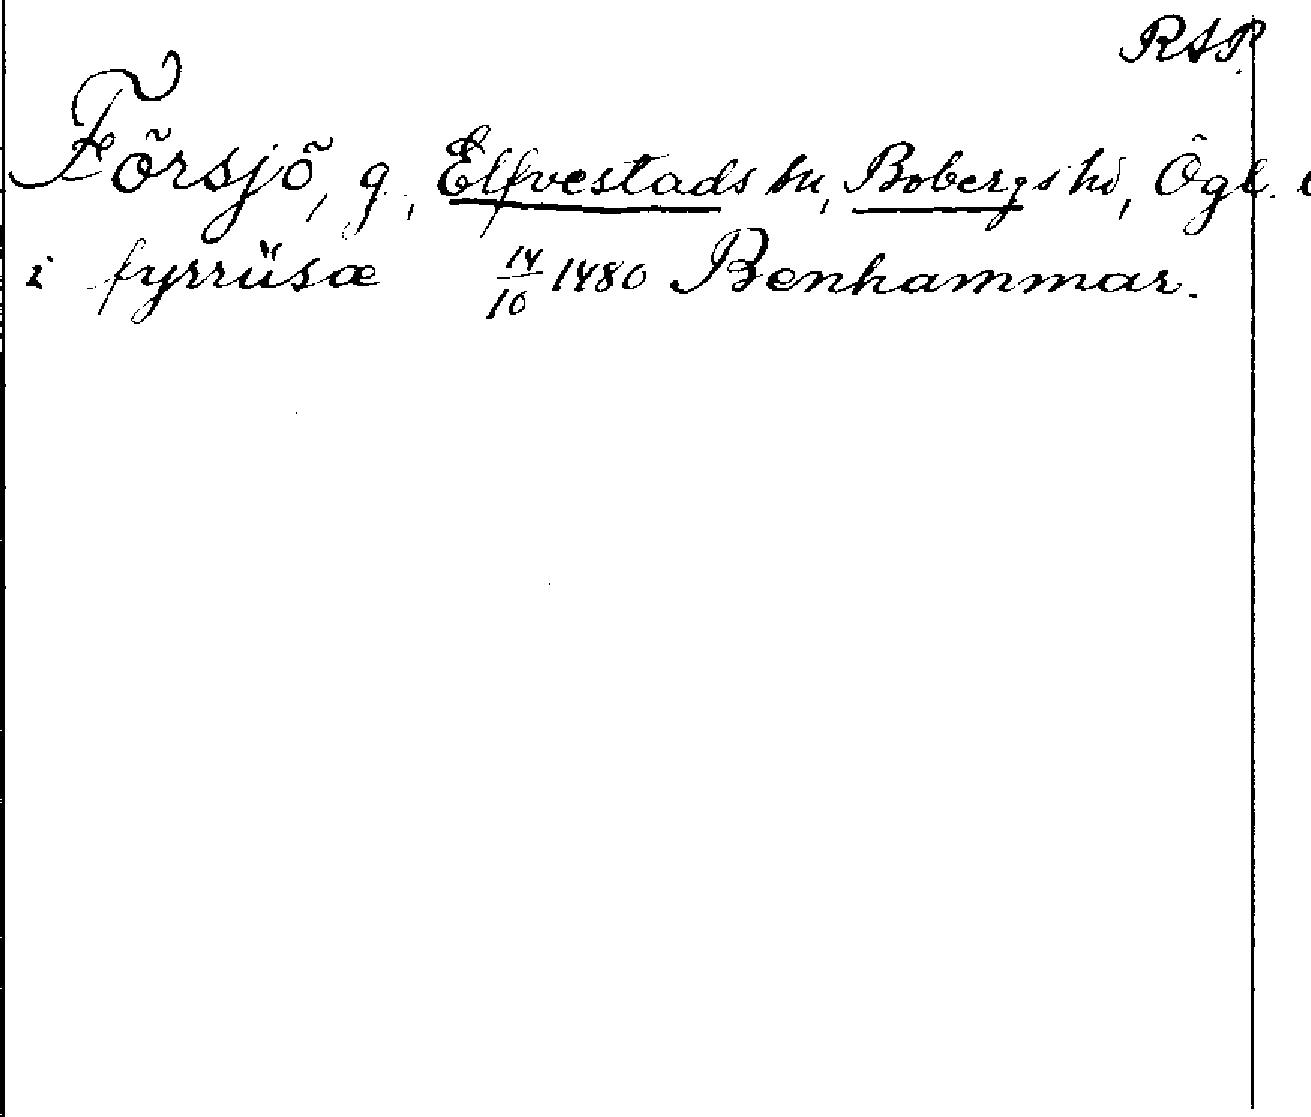 RAP.
Försjö, g., Elfvestads sn, Bobergs hd, Ögl.
i fyrriisæ 14/10 1480 Benhammar.